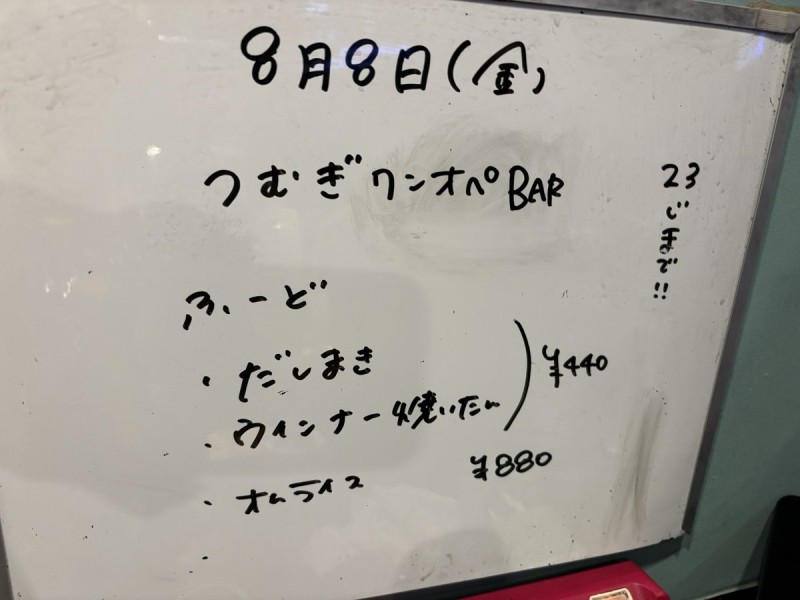 8月8日(金)
つむぎワンオペBAR
23じまで!!
ふーど
・だしまき
・ウインナー焼いたん
¥440
・オムライス ¥880
・